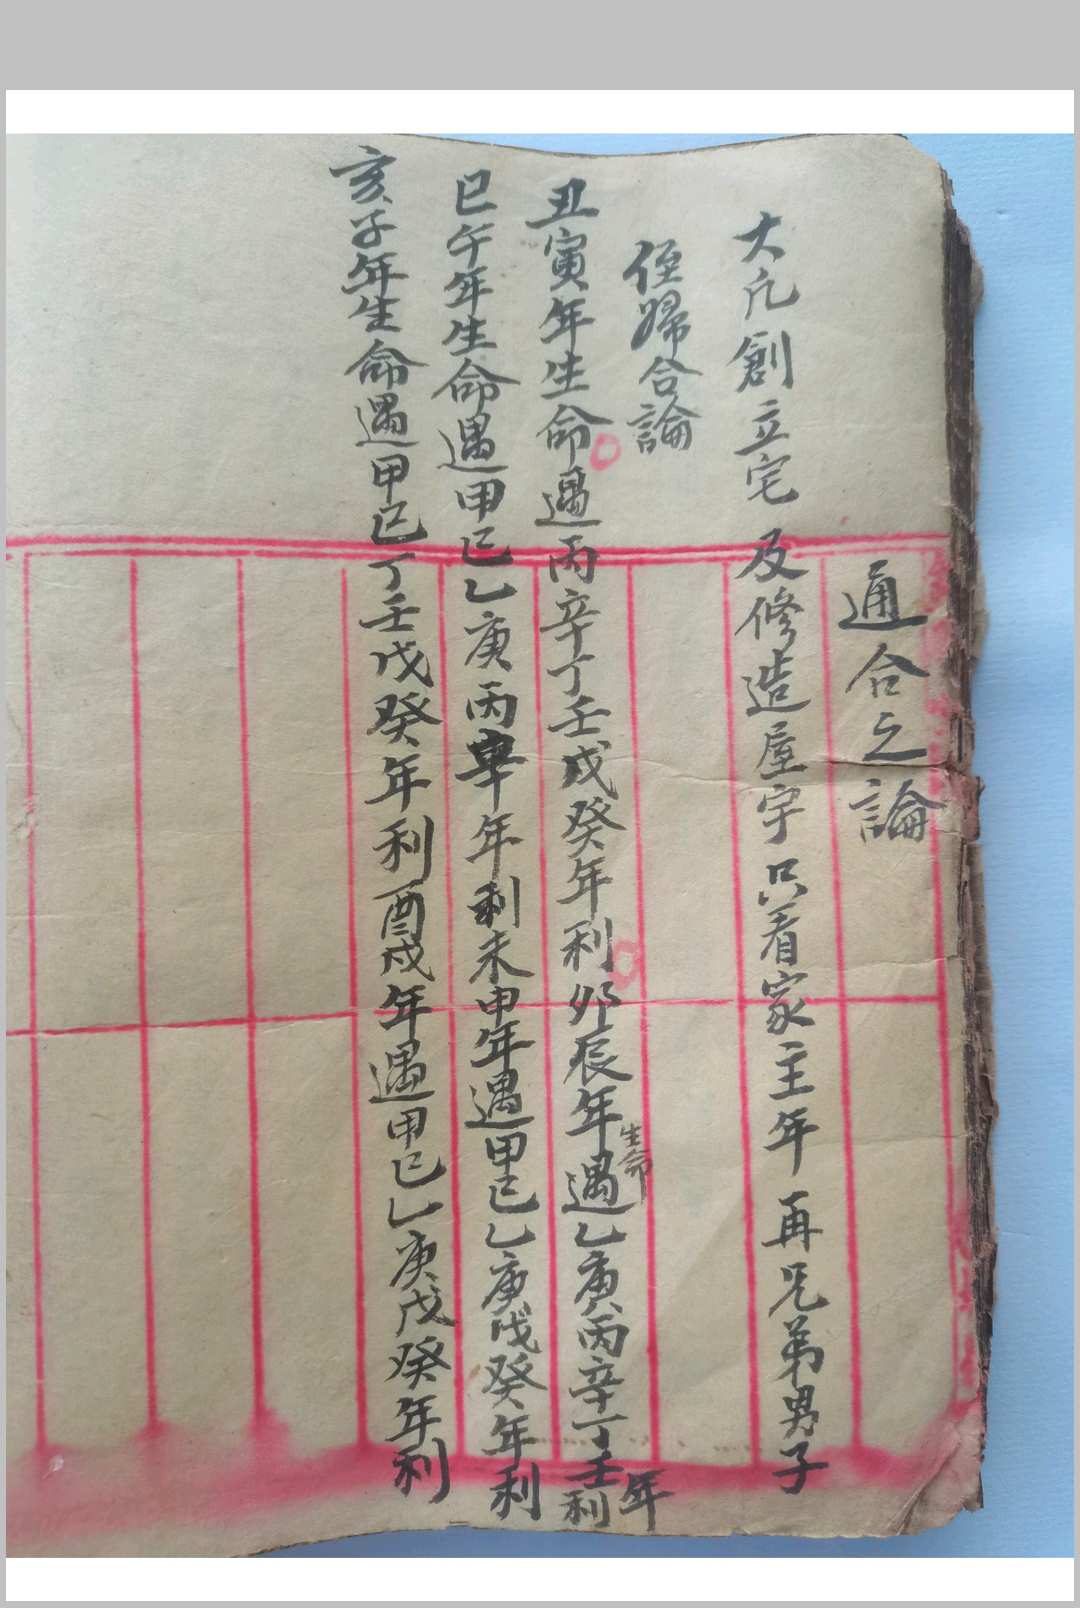 通合之論
大凡創立宅及修造屋宇只看家主年再兄弟男子
侄婦合論
丑寅年生命遇丙辛丁壬戊癸年利卯辰年生命遇乙庚丙辛丁壬年利
巳午年生命遇甲己乙庚丙辛年利未申年遇甲己乙庚戊癸年利
亥子年生命遇甲己丁壬戊癸年利酉戌年遇甲己乙庚戊癸年利